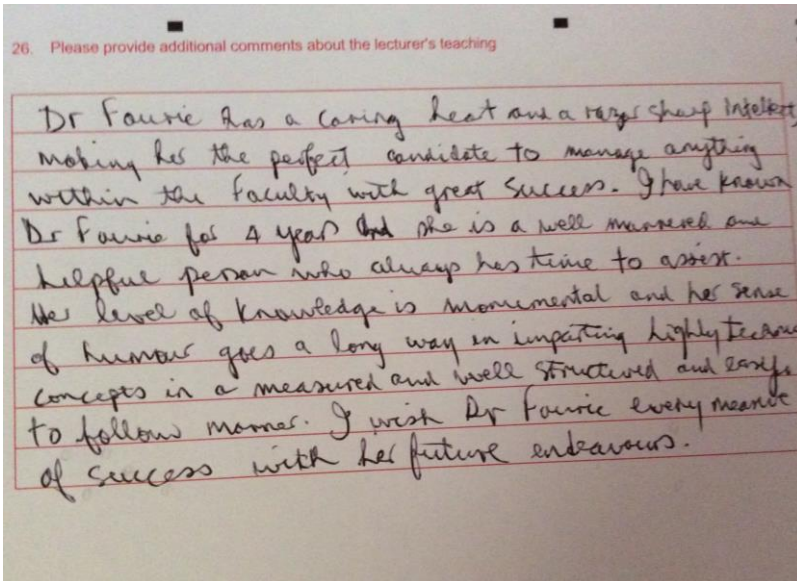 26. Please provide additional comments about the lecturer's teaching
Dr Fourie has a caring heat and a razor sharp intellect,
making her the perfect candidate to manage anything
within the faculty with great success. I have known
Dr Fourie for 4 years and she is a well mannered and
helpful person who always has time to assist.
Her level of knowledge is monumental and her sense
of humour goes a long way in imparting highly
concepts in a measured and well structured and easy
to follow manner. I wish Dr Fourie every
of success with her future endeavours.